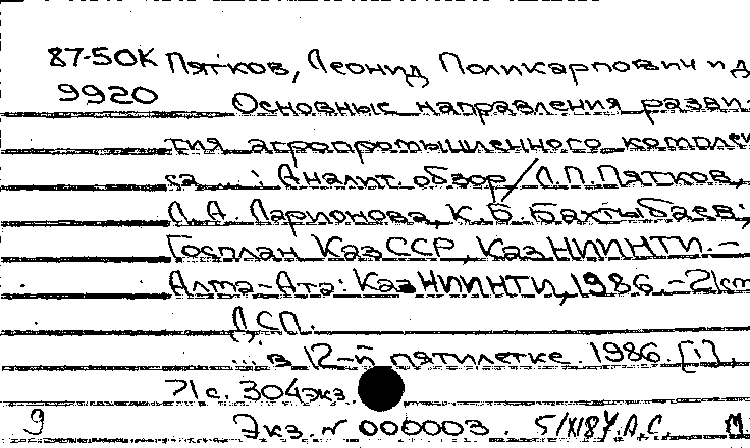 87-50К Пятков, Леонид Поликарпович и д
9920 Основные направления разви-
тия агропромышленного комплек
са ... : Аналит. обзор / Л.П. Пятков,
Л.А. Ларионова, К.Б. Бахтыбаев;
Госплан КазССР, КазНИИНТИ. -
Алма-Ата: КазНИИНТИ, 1986. - 21 см
ДСП.
... в 12-й пятилетке. 1986. [1],
71 с. 304 экз.
9 Экз. № 000003. А.С.